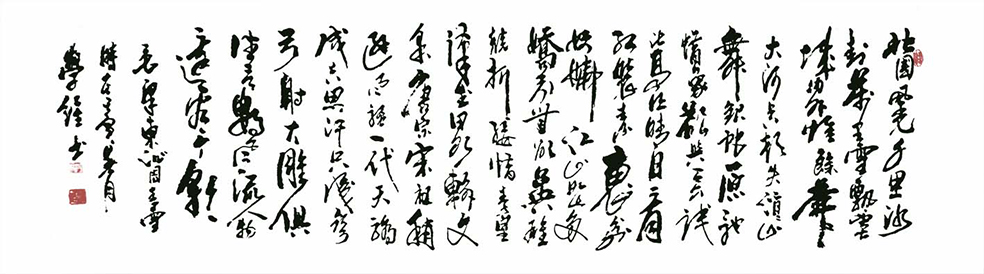 北国风光千里冰
封万里雪飘望长
城内外惟馀莽莽
大河上下顿失滔滔山
舞银蛇原驰
蜡象欲与天公试
比高须晴日看
红装素裹分外
妖娆江山如此多
娇引无数英雄
竞折腰惜秦皇
汉武略输文
采唐宗宋祖稍
逊风骚一代天骄
成吉思汗只识弯
弓射大雕俱
往矣数风流人物
还看今朝
毛泽东沁园春雪